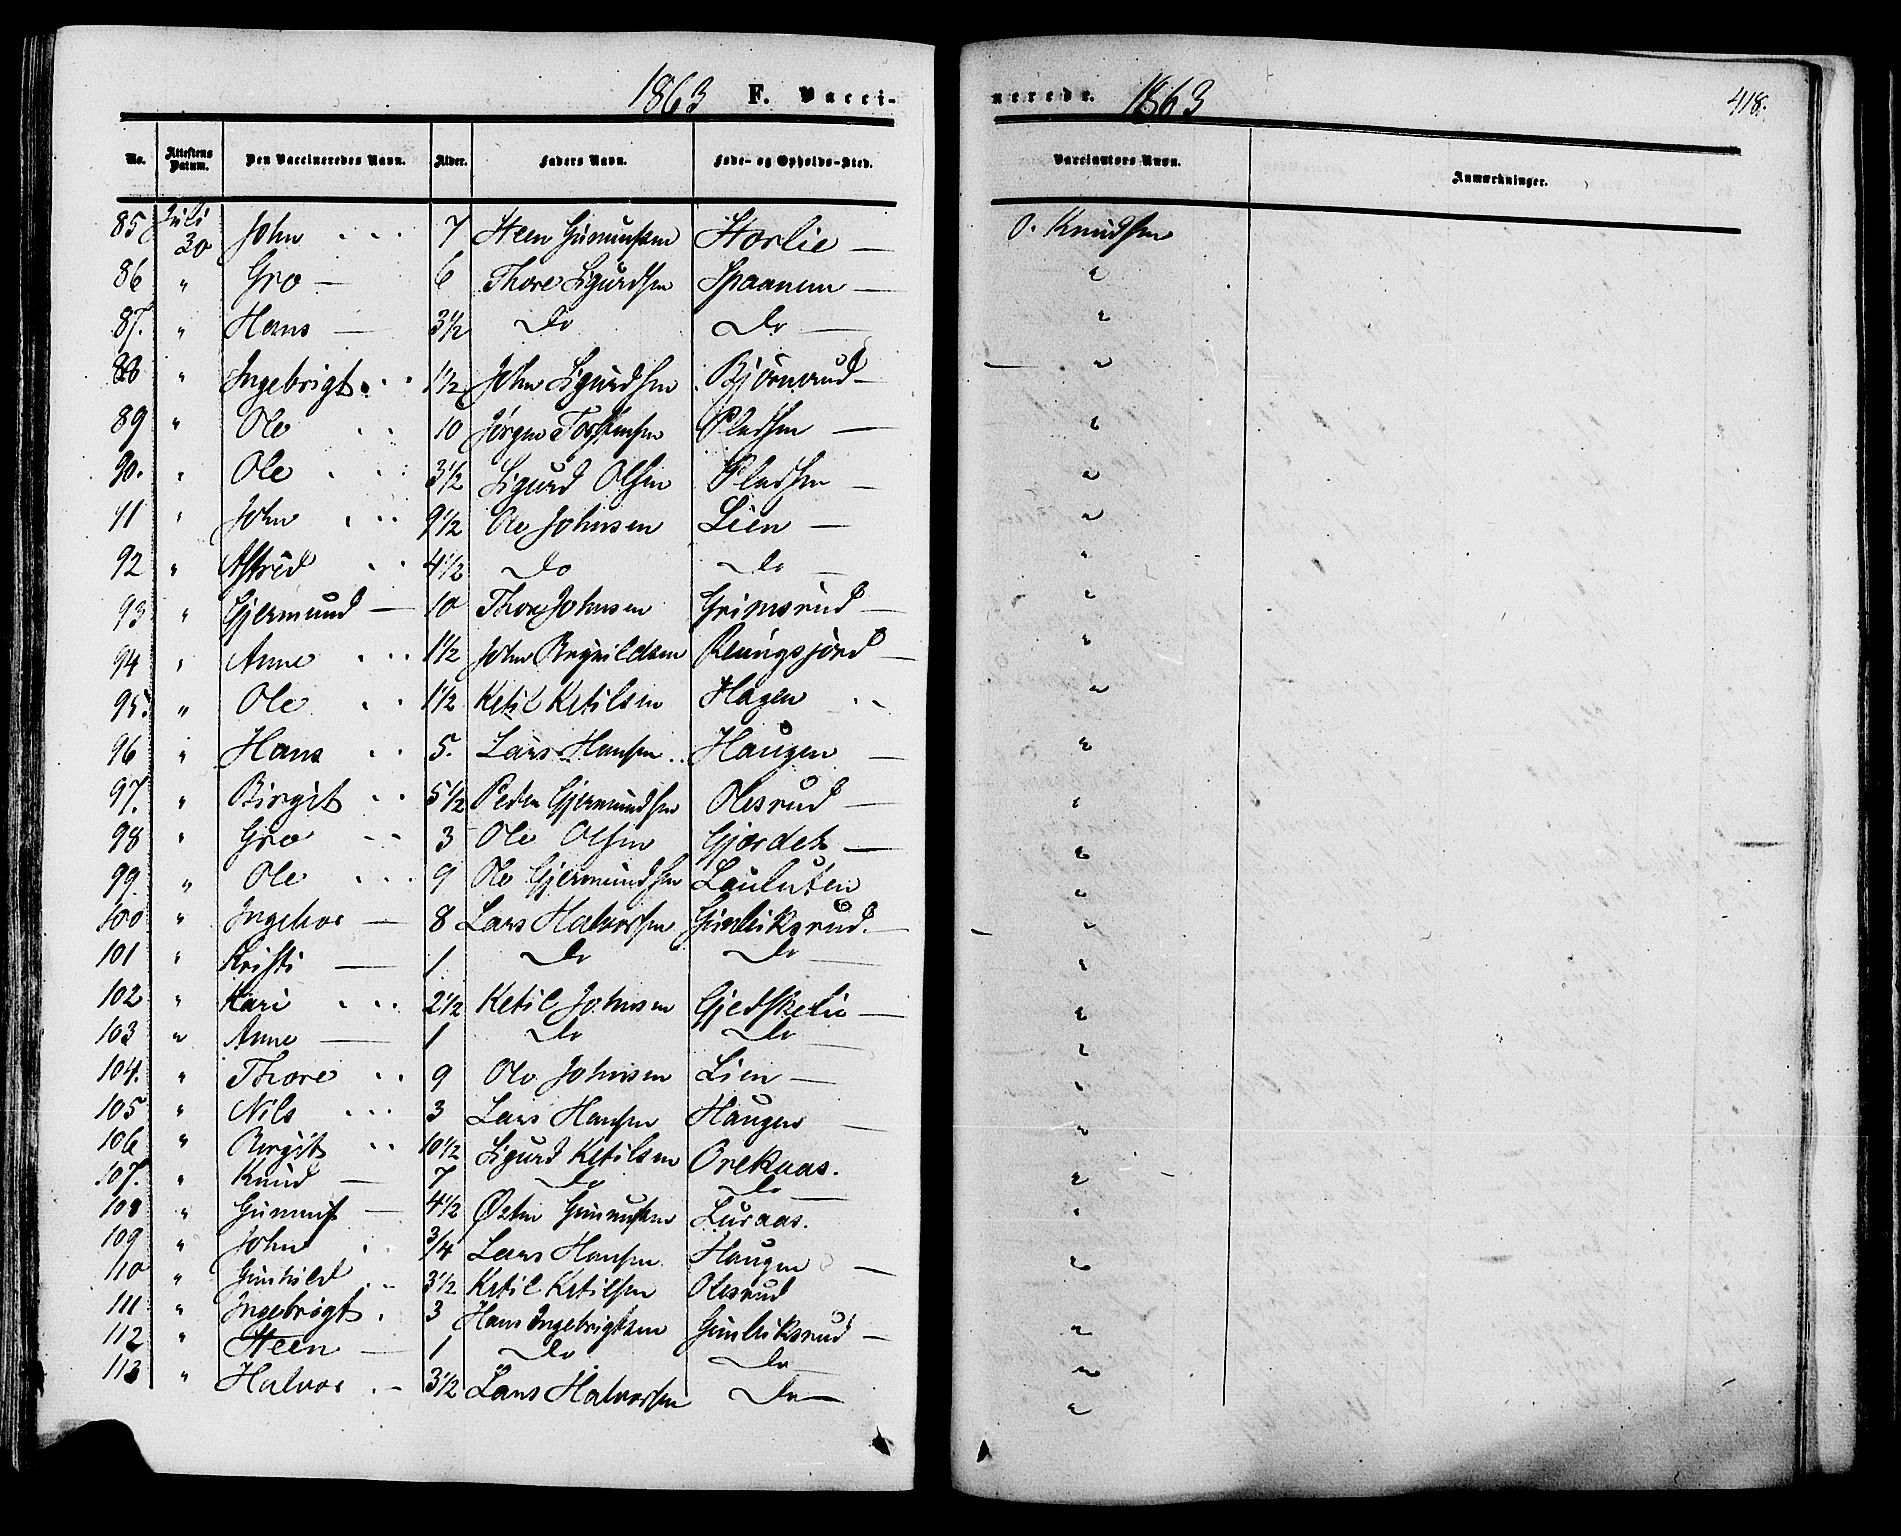 1863 F. Vacci-
nerede. 1863 418.
No. Attestens Datum. Den Vaccineredes Navn. Alder. Faders Navn. Føde- og Opholds-Sted. Vaccinateurs Navn. Anmærkninger.
85 Juli 30 John 7 Steen Gunnufsen Storlie — O. Knudsen
86 " Gro — 6 Thore Sigurdsen Spaanem — "
87. " Hans — 3 1/2 Do Do — "
88 " Ingebrigt 1 1/2 John Sigurdsen Bjørnerud — "
89 " Ole 10 Jørgen Torstensen Pladsen — "
90. " Ole 3 1/2 Sigurd Olsen Pladsen — "
91 " John 9 1/2 Ole Johnsen Lien — "
92 " Astrid 4 1/2 Do Do — "
93 " Gjermund — 10 Thore Johnsen Grimsrud — "
94 " Anne 1 1/2 John "
95. " Ole 1 1/2 Ketil Ketilsen Hagen "
96 " Hans 5. Lars Hansen Haugen — "
97. " Birgit 5 1/2 Peder Gjermundsen Olesrud — "
98 " Gro 3 Ole Olsen Gjordet — "
99 " Ole 9 Ole Gjermundsen Lauluten "
100 " Ingebor — 8 Lars Halvorsen Gunleiksrud. — "
101 " Kristi — 1 Do Do — "
102 " Kari 2 1/2 Ketil Johnsen —  "
103 " Anne — 1 Do Do — "
104. " Thore 9 Ole Johnsen Lien — "
105 " Nils 3 Lars Hansen Haugen — "
106 " Birgit 10 1/2 Sigurd Ketilsen Orekaas. "
107. " Knud — 7 Do Do — "
108 " Gunnuf — 4 1/2 Østen Gunnufsen Luraas. "
109 " John 3/4 Lars Hansen Haugen — "
110 " Gunhild 3 1/2 Ketil Ketilsen Olesrud
111 " Ingebrigt 3 Hans Ingebrigtsen Gunleiksrud — "
112 " Steen — 1 Do Do — "
113 " Halvor 3 1/2 Lars Halvorsen Do — "